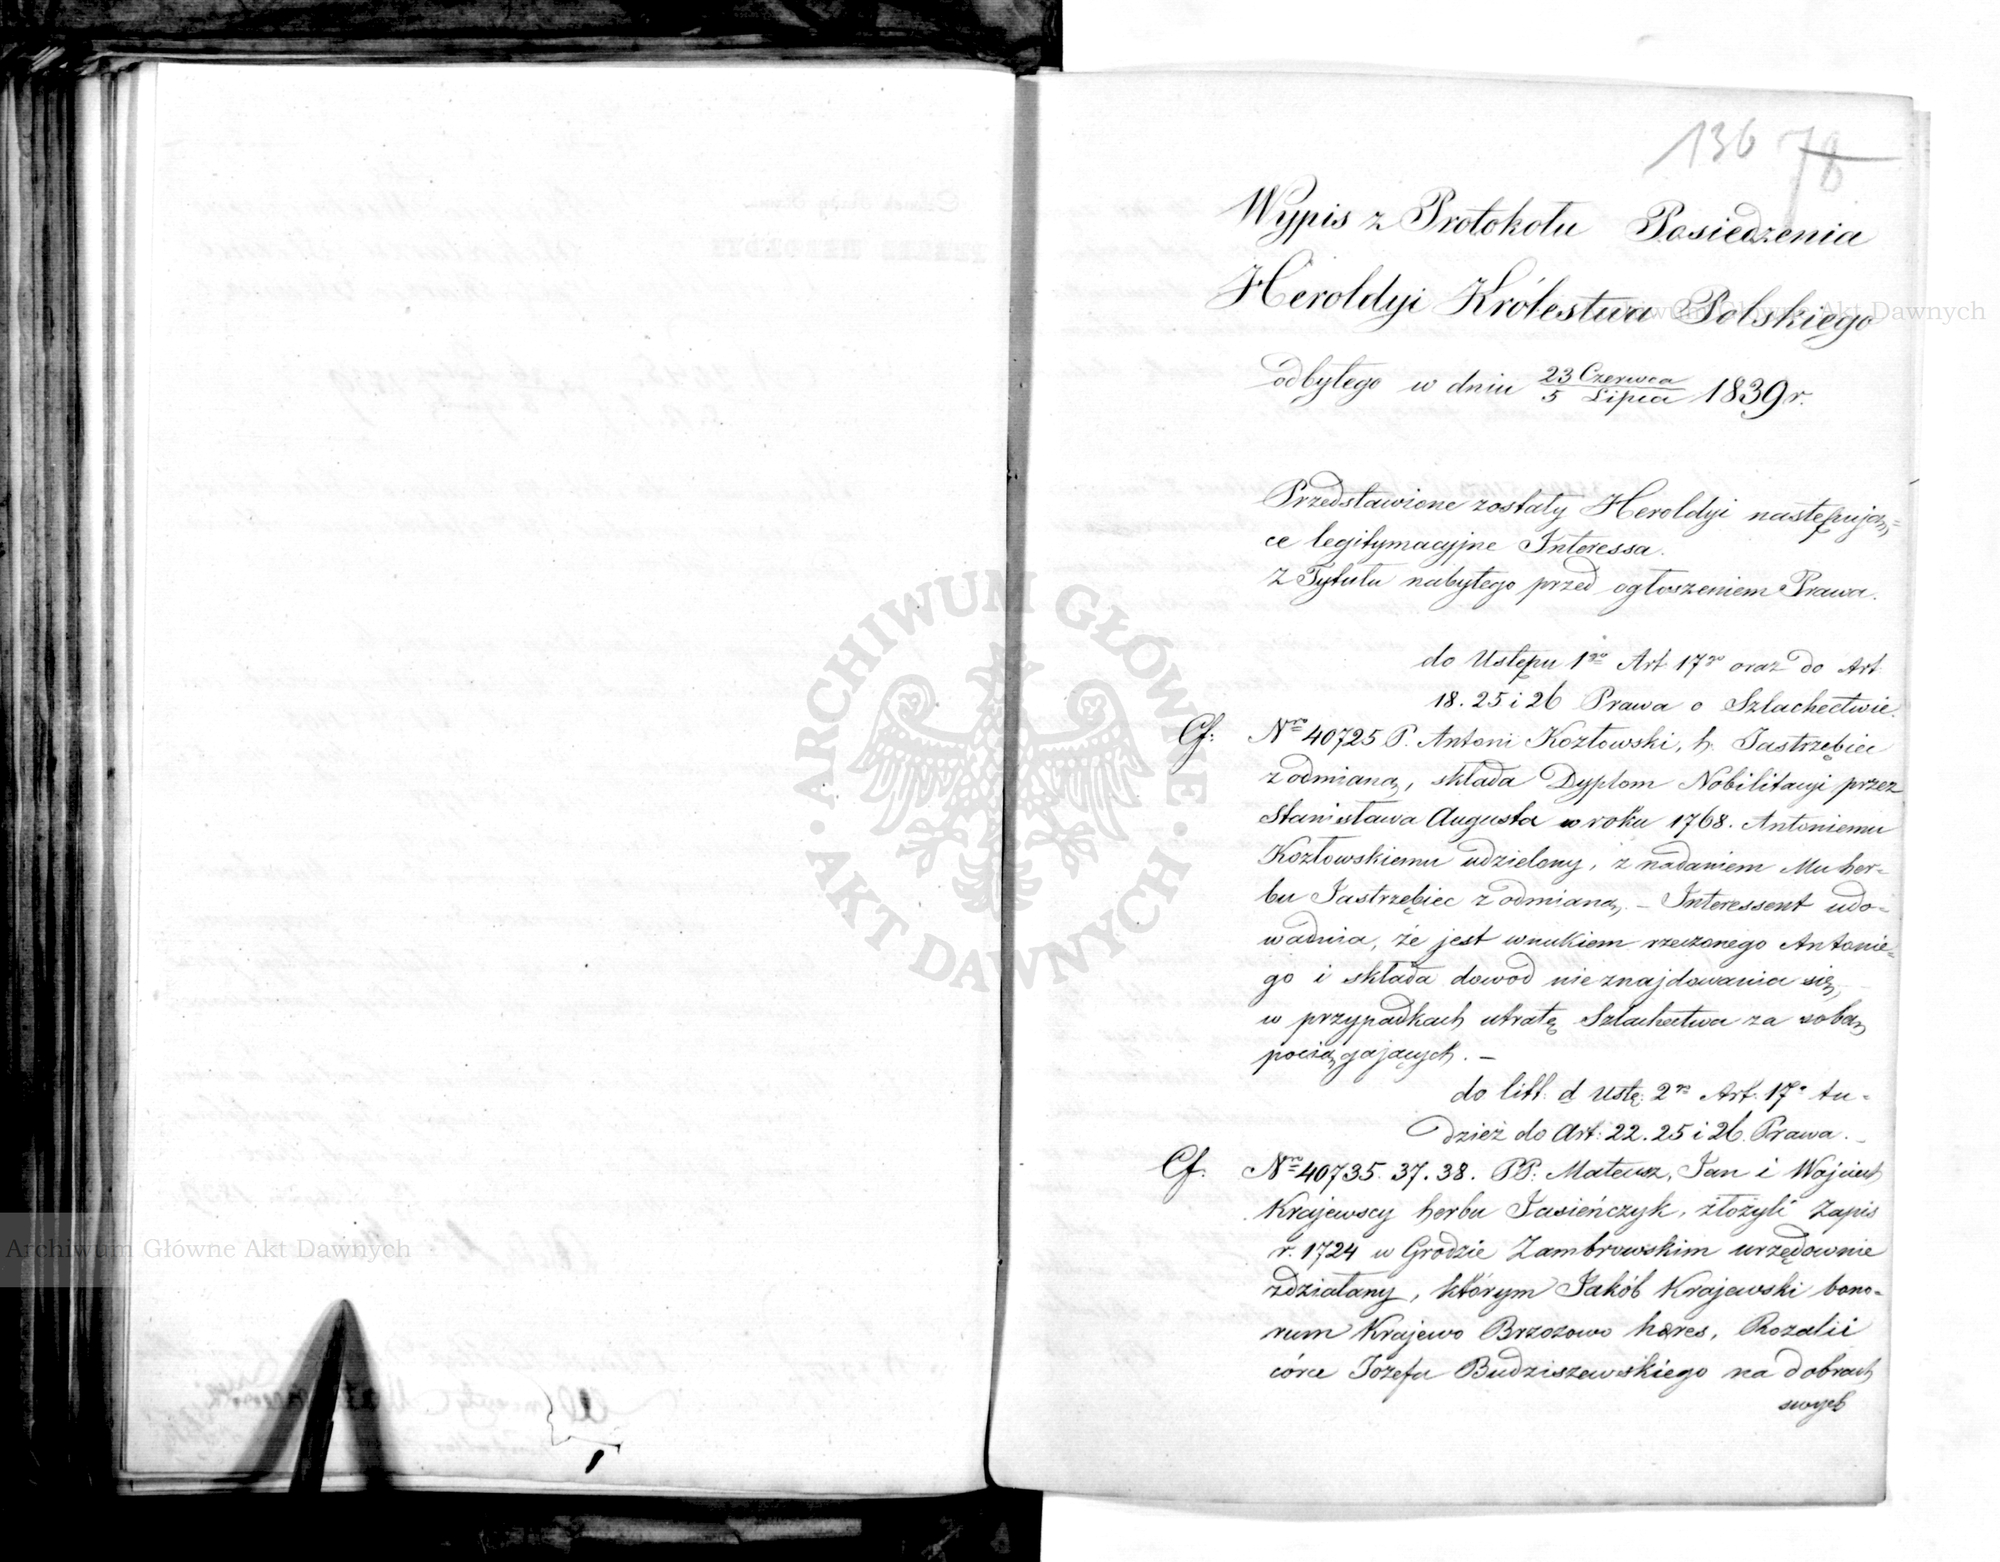 136 78
Wypis z Protokołu Posiedzenia
Heroldyi Królestwa Polskiego
odbytego w dniu 23 Czerwca / 5 Lipca 1839 r.
Przedstawione zostały Heroldyi następują=
ce legitymacyjne Interessa.
Z Tytułu nabytego przed ogłoszeniem Prawa.
do Ustępu 1go Art 17go oraz do Art.
18. 25 i 26 Prawa o Szlachectwie.
Cf: Nro 40725 P. Antoni Kozłowski, h. Jastrzębiec
z odmianą, składa Dyplom Nobilitacyi przez
Stanisława Augusta w roku 1768. Antoniemu
Kozłowskiemu udzielony, z nadaniem Mu her=
bu Jastrzębiec z odmianą. – Interessent udo=
wadnia, że jest wnukiem rzeczonego Antonie=
go i składa dowod nieznajdowania się
w przypadkach utratę Szlachectwa za sobą
pociągających. –
do litt: d Ustę: 2go Art. 17o tu=
dzież do Art: 22. 25 i 26. Prawa. –
Cf. Nro 40735. 37. 38. PP. Mateusz, Jan i Wojciech
Krajewscy herbu Jasieńczyk, złożyli Zapis
r. 1724 w Grodzie Zambrowskim urzędownie
zdziałany, którym Jakób Krajewski bono=
rum Krajewo Brzozowo hæres, Rozalii
córce Jozefa Budziszewskiego na dobrach
swych
ARCHIWUM GŁÓWNE
AKT DAWNYCH
Archiwum Główne Akt Dawnych
Archiwum Główne Akt Dawnych